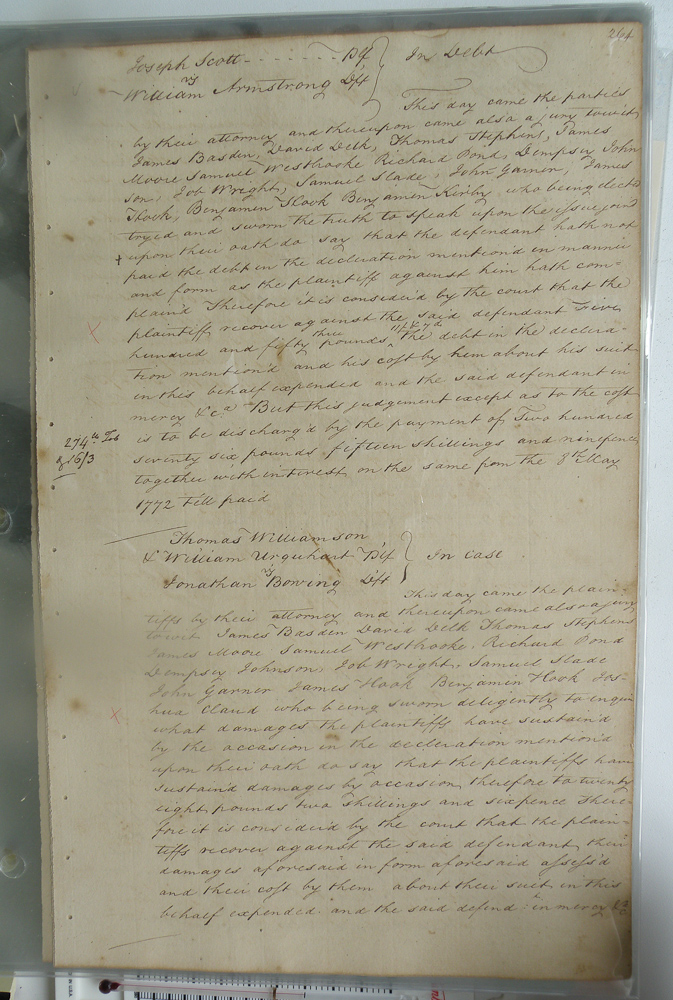 264
Joseph Scott - - - - - - - Plf } In Debt
vs
William Armstrong Dft
This day came the parties
by their attorney and thereupon came also a jury towit
James Basden, David Delk, Thomas Stephens, James
Moore Samuel Westbrooke Richard Pond, Dempsey John
son, Job Wright, Samuel Slade, John Garner, James
Hook, Benjamin Hook Benjamin Kirby, who being elected
tryed and sworn the truth to speak upon the issue joind
upon their oath do say that the defendant hath not
paid the debt in the declaration mention'd in manner
and form as the plaintiff against him hath com=
plain'd Therefore it is consider'd by the court that the
plaintiff recover against the said defendant Five
hundred and fifty three pounds, 11/ & 7d The debt in the declara=
tion mention'd and his cost by him about his suit
in this behalf expended and the said defendant in
mercy &ca But this judgement except as to the cost
is to be discharg'd by the payment of Two hundred
seventy six pounds fifteen shillings and ninepence
together with interest on the same from the 8th May
1772 till paid
274th Tob
& 16/3
Thomas Williamson
& William Urquhart Plf } In Case
vs
Jonathan Bowing Dft
This day came the plain=
tiffs by their attorney and thereupon came also a jury
towit James Basden David Delk Thomas Stephens
James Moore Samuel Westbrooke, Richard Pond
Dempsey Johnson, Job Wright, Samuel Slade
John Garner James Hook Benjamin Hook Jos=
hua Claud who being sworn deligently to enquire
what damages the plaintiffs have sustain'd
by the occasion in the declaration mention'd
upon their oath do say that the plaintiffs have
sustain'd damages by occasion, therefore to twenty
eight pounds two shillings and sixpence There=
fore it is consider'd by the court that the plain=
tiffs recover against the said defendant their
damages aforesaid in form aforesaid assess'd
and their cost by them about their suit in this
behalf expended and the said defendt in mercy &c